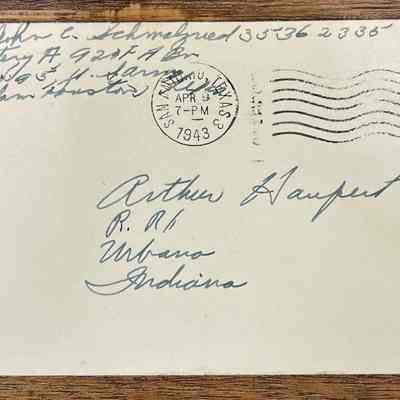 John C. Schmalzried 35362335
Btry A 920 F A Bn
95 Sam Houston Texas
SAN ANTONIO, TEXAS 3
APR 9
7-PM
1943
Arthur Haupert
R. R. 1
Urbana
Indiana